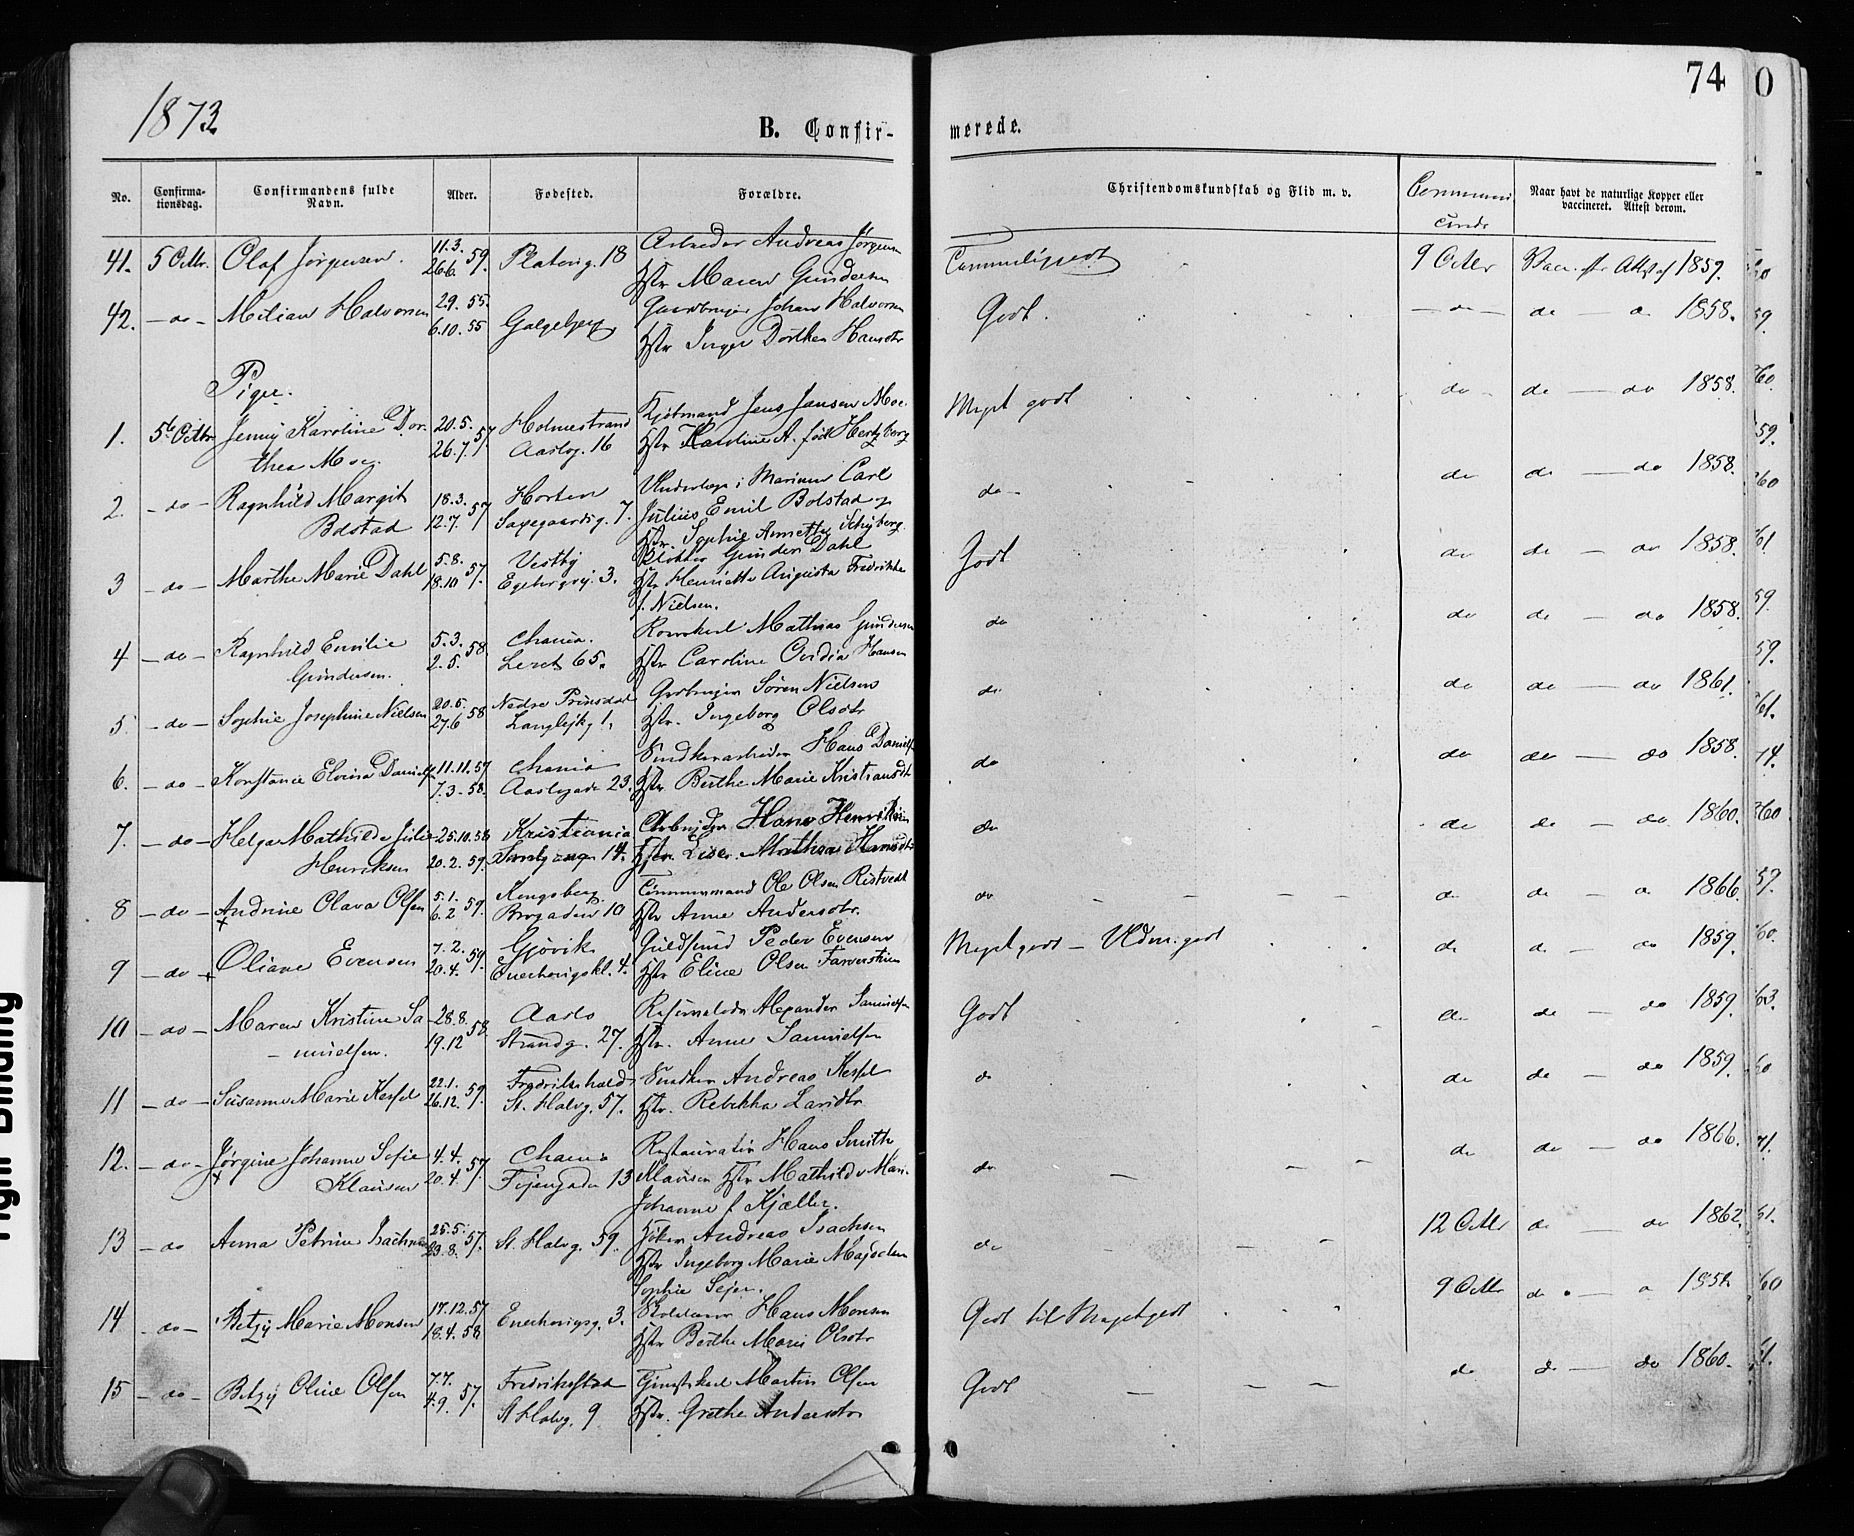 1873.
74
B. Confir- merede.
No. Confirma-tionsdag. Confirmandens fulde Navn. Alder. Fødested. Forældre. Christendomskundskab og Flid m. v. Naar havt de naturlige Kopper eller vaccineret. Attest derom.
41. 5 Octbr. Olaf Jørgensen. 11.3. 26.6. 59. Platoug. 18 Arbeider Andreas Jørgensen
Hstr Maren Gundersen 9 Octbr 1859.
42. — do — Milian Halvorsen 2.9. 55. 6.10. 55 Galgeberg Gaardbruger Johan Halvorsen
Hstr Inger Dorthea Hansdtr Godt. — do — do 1858.
Piger.
1. 5te Octbr Jenny Karoline Dor-
thea Moe. 20.5. 26.7. 57. Holmestrand
Aaslog. 16 Kjøbmand Jens Jansen Moe.
Hstr Karoline A. fød Hertzberg Meget godt do de — do 1858.
2. — do — Ragnhild Margit
Bolstad 18.3. 12.7. 57 Horten
Saxegaardsg. 7. Underlæge i Marinen Carl
Julius Emil Bolstad og
Hstr. Sophie Annette Schyberg. do do de — do 1858.
3 — do — Marthe Marie Dahl 5.8. 18.10 57. Vestby
Egebergvj. 3. Gunder Dahl
Hstr Henriette Augusta Fredrikke
f. Nielsen. Godt do de — do 1858.
4 — do — Ragnhild Emilie
Gundersen. 5.3. 2.5. 58. Chania.
Leret 65. Mathias Gundersen
Hstr Caroline Ovidia Hansen do do de — do 1858.
5. — do — Sophie Josephine Nielsen 20.5. 27.6 58 Nedre Prinsdal
Langleikg 1. Grdbruger Søren Nielsen
Hstr. Ingeborg Olsdtr do do de — do 1861.
6. — do — Konstance Elvina Danielsen 11.11.57 7.3.58. Chania
Aaslogade 23. Snedkerarbeider Hans Danielsen
Hstr. Berthe Marie Kristiansdtr do do de — do 1858.
7. — do — Helga Mathilde Julie
Henriksen 25.10.58 20.2.59. Kristiania
14. Arbeider Hans Henriksen
Hstr. Lise Mathea Hansdtr do do de — do 1860.
8 — do — Andrine Olava Olsen 5.1. 6.2 59. Kongsberg
Brogaden 10 Tømmermand Ole Olsen Ristvedt
Hstr Anne Andersdtr. do do de — do 1866.
9 — do — Oliane Evensen 7.2. 20.4. 59. Gjøvik
Enerhaugskl. 4. Guldsmed Peder Evensen
Hstr Eline Olsen Meget godt — Udm. godt do de — do 1859.
10 — do — Maren Kristine Sa-
muelsen. 28.8. 19.12 58. Aaslo
Strandg. 27. Alexander Samuelsen
Hstr. Anne Samuelsen Godt do de — do 1859.
11 — do — Susanne Marie Kessel 22.1. 26.12. 59. Fredrikshald
St. Halvg. 57. Snedker Andreas Kessel
Hstr. Rebekka Larsdtr do do de — do 1859.
12. — do — Jørgine Johanne Sofie
Klausen 4.4. 20.4. 57. Chania
Tøiengaden 13 Restauratør Hans Smith
Klausen Hstr Mathilde Marie
Johanne f. Kjøller. do do de — do 1866.
13 — do Anna Petrine Isachsen 25.5. 23.8. 57. St. Halvg. 59. Andreas Isachsen
Hstr Ingeborg Marie Magdelen
Sophie Sejer. do 12 Octbr do — do 1862.
14 — do — Betzy Marie Monsen 17.12.57 18.4.58 Enerhaugsg. 3. Hans Monsen
Hstr Berthe Marie Olsdtr Godt til Meget godt 9 Octbr do — 1858
15 — do — Betzy Oline Olsen 7.7. 4.9. 57. Fredrikstad
St Halvg. 9 Tjenestekarl Martin Olsen
Hstr. Grethe Andersdtr Godt do de — do 1860.